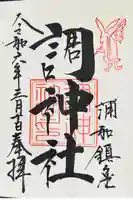 浦和鎮座
調神社
令和六年三月十日奉拝